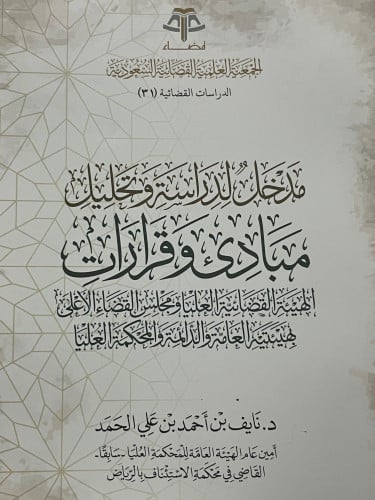 قضاء
الجمعية العلمية القضائية السعودية
الدراسات القضائية (٣١)
مَدْخَلٌ لِدِرَاسَةِ وَتَحْلِيْلِ
مَبَادِئِ وَقَرَارَاتِ
الهَيْئَةِ القَضَائِيَّةِ العُلْيَا وَمَجْلِسِ القَضَاءِ الأَعْلَى
بِهَيْئَتَيْهِ العَامَّةِ وَالدَّائِمَةِ وَالمَحْكَمَةِ العُلْيَا
د. نَايِف بن أَحْمَد بن عَلِي الحَمَد
أمِين عَام الهَيْئَة العَامَّة لِلْمَحْكَمَةِ العُلْيَا - سَابِقًا -
القَاضِي فِي مَحْكَمَةِ الاسْتِئْنَافِ بِالرِّيَاض